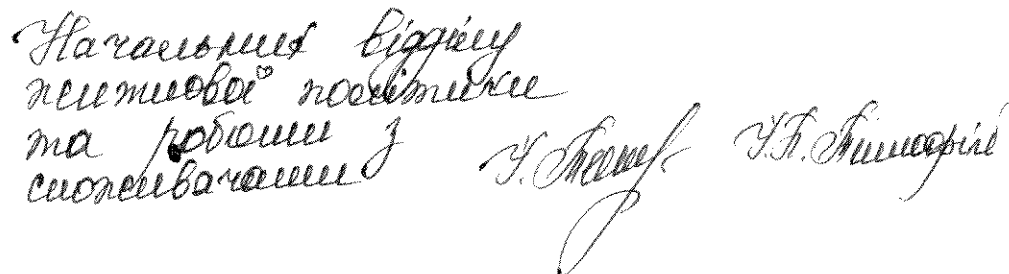 Начальник відділу
житлової політики
та роботи з
споживачами